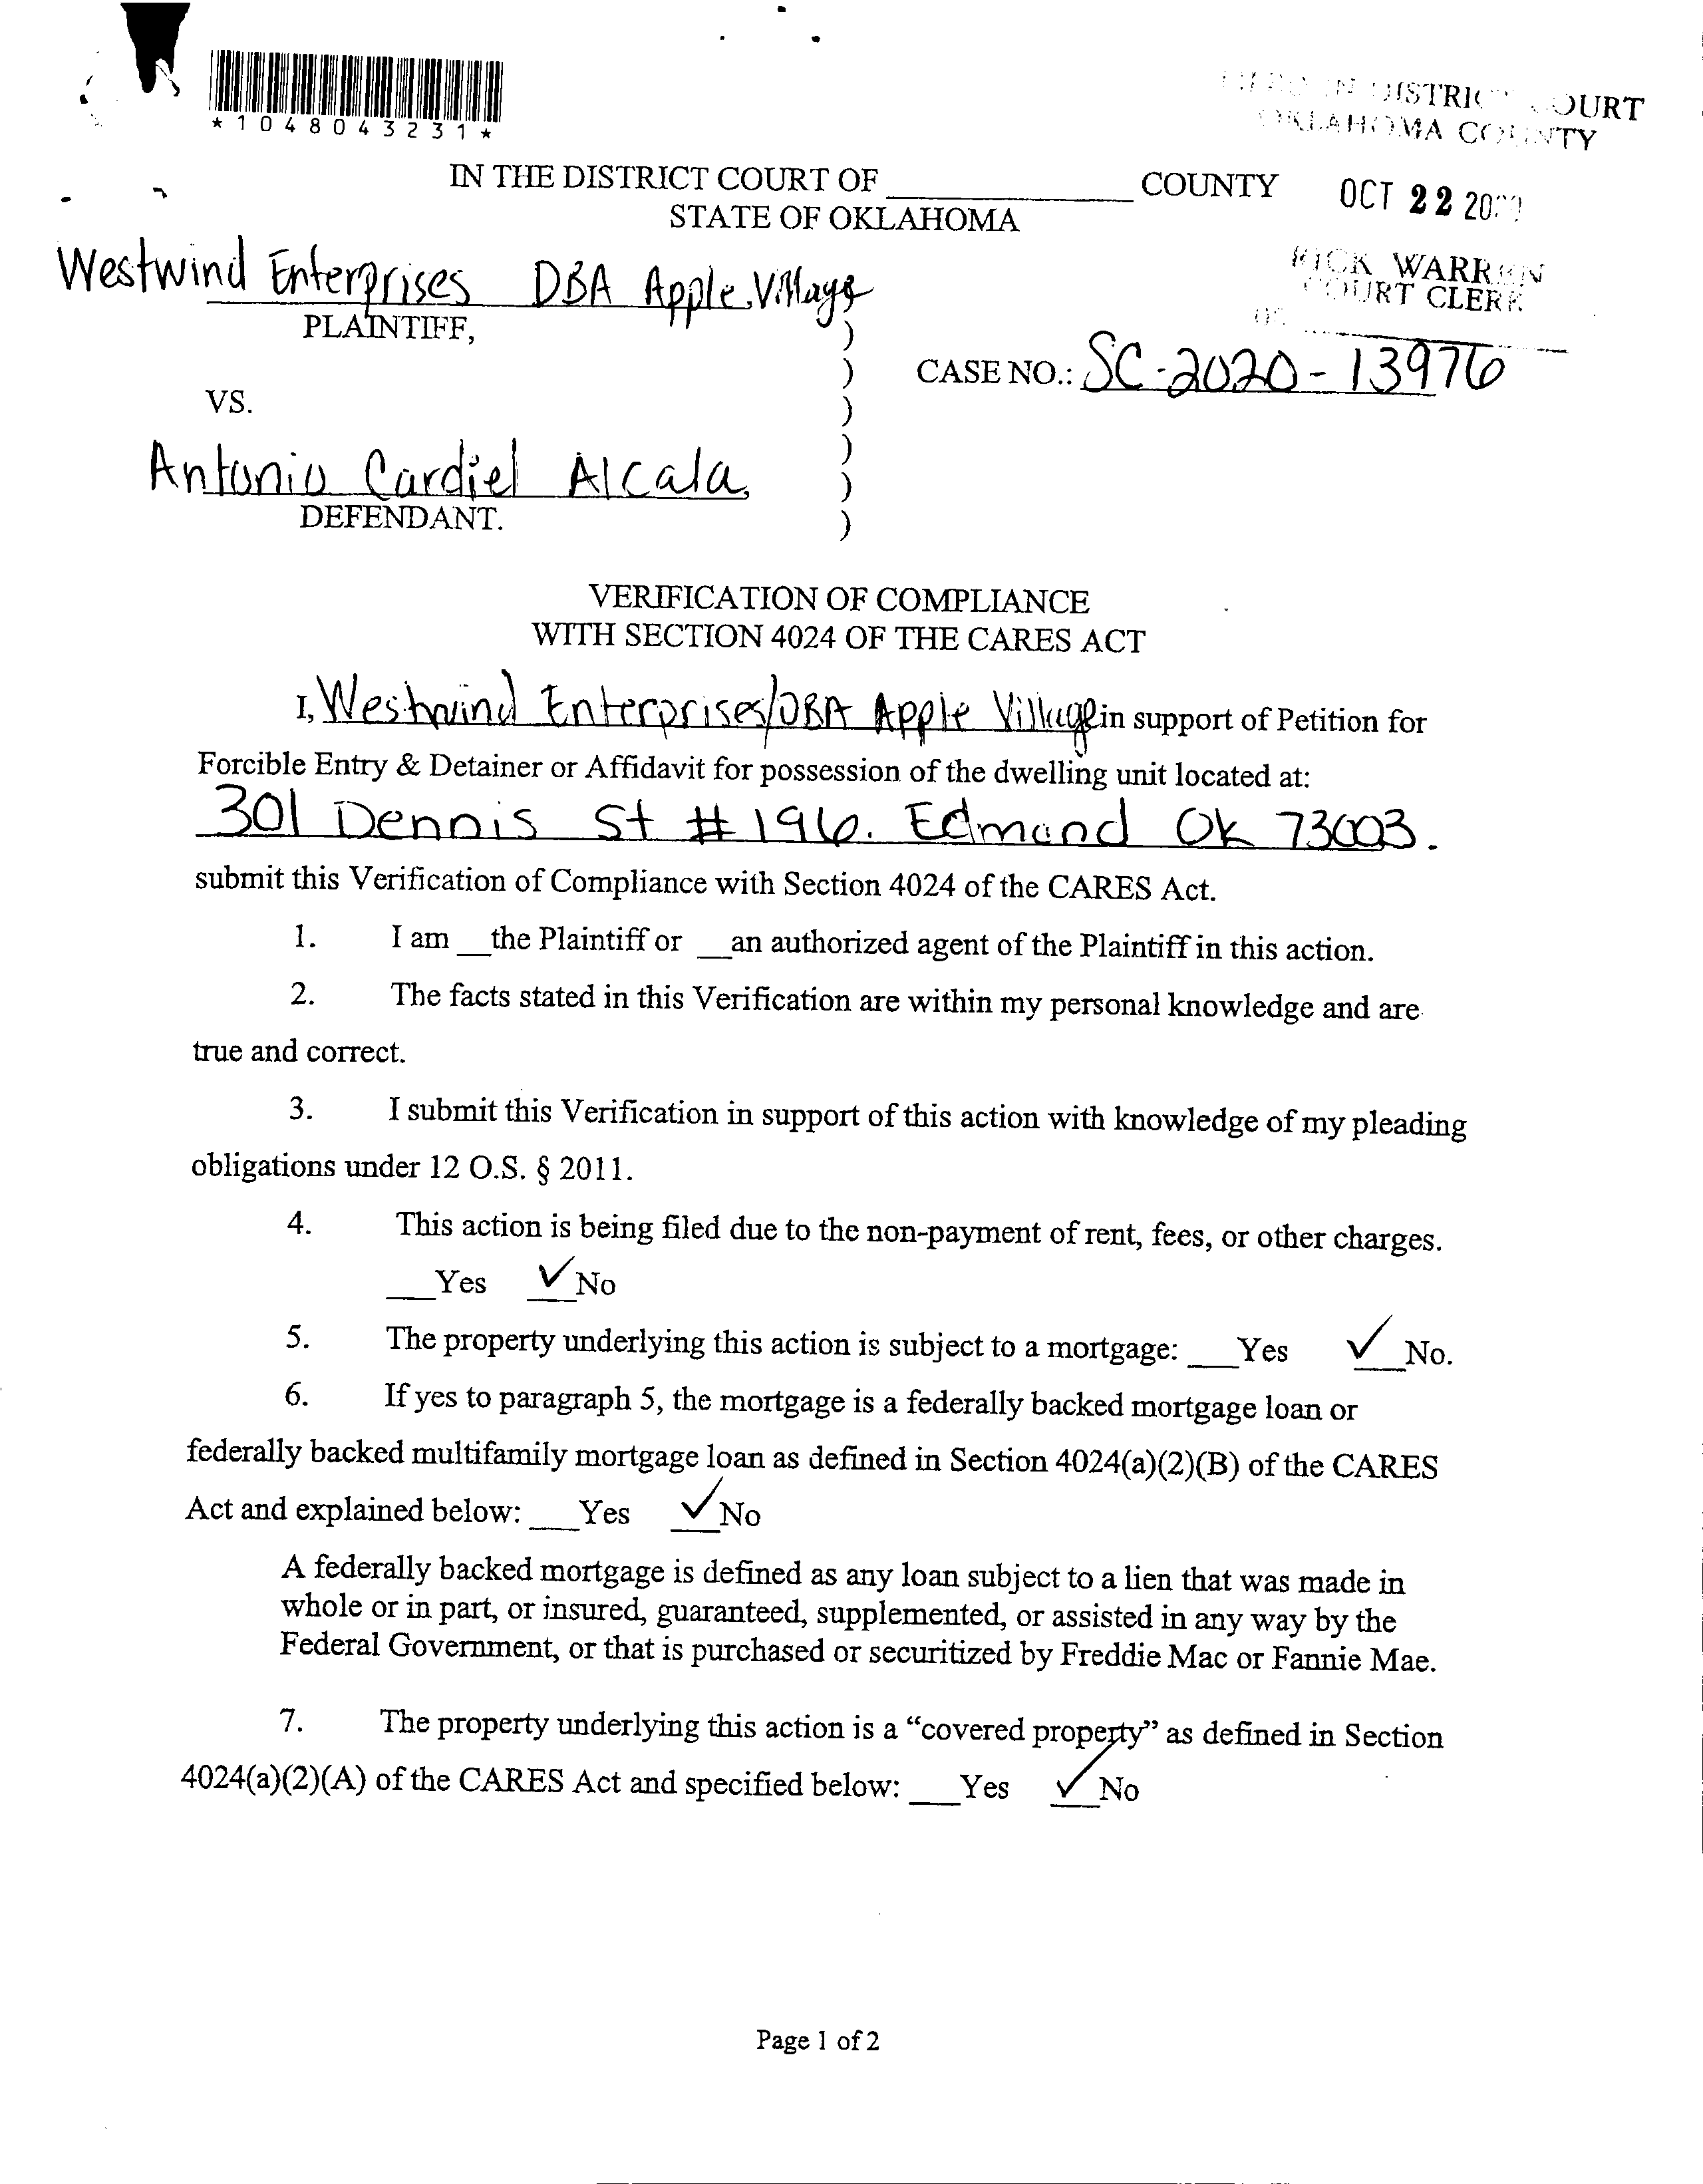 *1048043231*
DISTRICT COURT
OKLAHOMA COUNTY
IN THE DISTRICT COURT OF ______________ COUNTY
STATE OF OKLAHOMA
OCT 22 20
RICK WARREN
COURT CLERK
Westwind Enterprises DBA Apple Village
PLAINTIFF,
)
)
CASE NO.: SC-2020-13976
VS.
)
)
Antonio Cardiel Alcala,
)
DEFENDANT.
)
VERIFICATION OF COMPLIANCE
WITH SECTION 4024 OF THE CARES ACT
I, Westwind Enterprises/DBA Apple Village in support of Petition for
Forcible Entry & Detainer or Affidavit for possession of the dwelling unit located at:
301 Dennis St # 196. Edmond Ok 73003.
submit this Verification of Compliance with Section 4024 of the CARES Act.
1. I am __the Plaintiff or __an authorized agent of the Plaintiff in this action.
2. The facts stated in this Verification are within my personal knowledge and are
true and correct.
3. I submit this Verification in support of this action with knowledge of my pleading
obligations under 12 O.S. § 2011.
4. This action is being filed due to the non-payment of rent, fees, or other charges.
___Yes ✓No
5. The property underlying this action is subject to a mortgage: ___Yes ✓No.
6. If yes to paragraph 5, the mortgage is a federally backed mortgage loan or
federally backed multifamily mortgage loan as defined in Section 4024(a)(2)(B) of the CARES
Act and explained below: ___Yes ✓No
A federally backed mortgage is defined as any loan subject to a lien that was made in
whole or in part, or insured, guaranteed, supplemented, or assisted in any way by the
Federal Government, or that is purchased or securitized by Freddie Mac or Fannie Mae.
7. The property underlying this action is a “covered property” as defined in Section
4024(a)(2)(A) of the CARES Act and specified below: ___Yes ✓No
Page 1 of 2